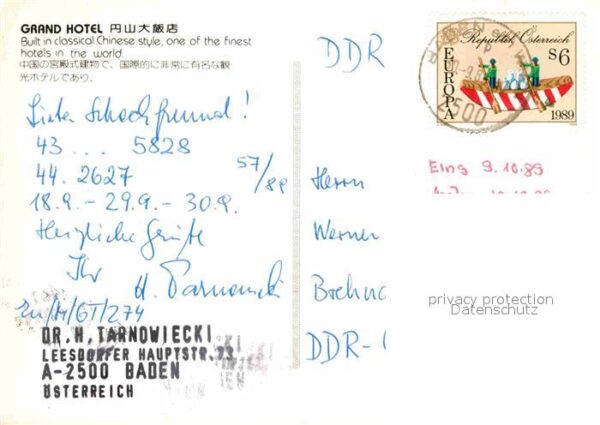 GRAND HOTEL 円山大飯店
Built in classical Chinese style, one of the finest
hotels in the world.
中国の宮殿式建物で、国際的に非常に有名な観
光ホテルであり。
Lieber Schachfreund!
43 ... 5828
44. 2627
57/89
18.9.- 29.9.- 30.9.
Herzliche Grüße
Ihr H. Tarnowiecki
/M/GT/274
DR.H.TARNOWIECKI
LEESDORFER HAUPTSTR.
A-2500 BADEN
ÖSTERREICH
DDR
Republik Österreich
EUROPA
S6
1989
2500
Eing 9.10.89
Herrn
Werner
DDR-
privacy protection
Datenschutz